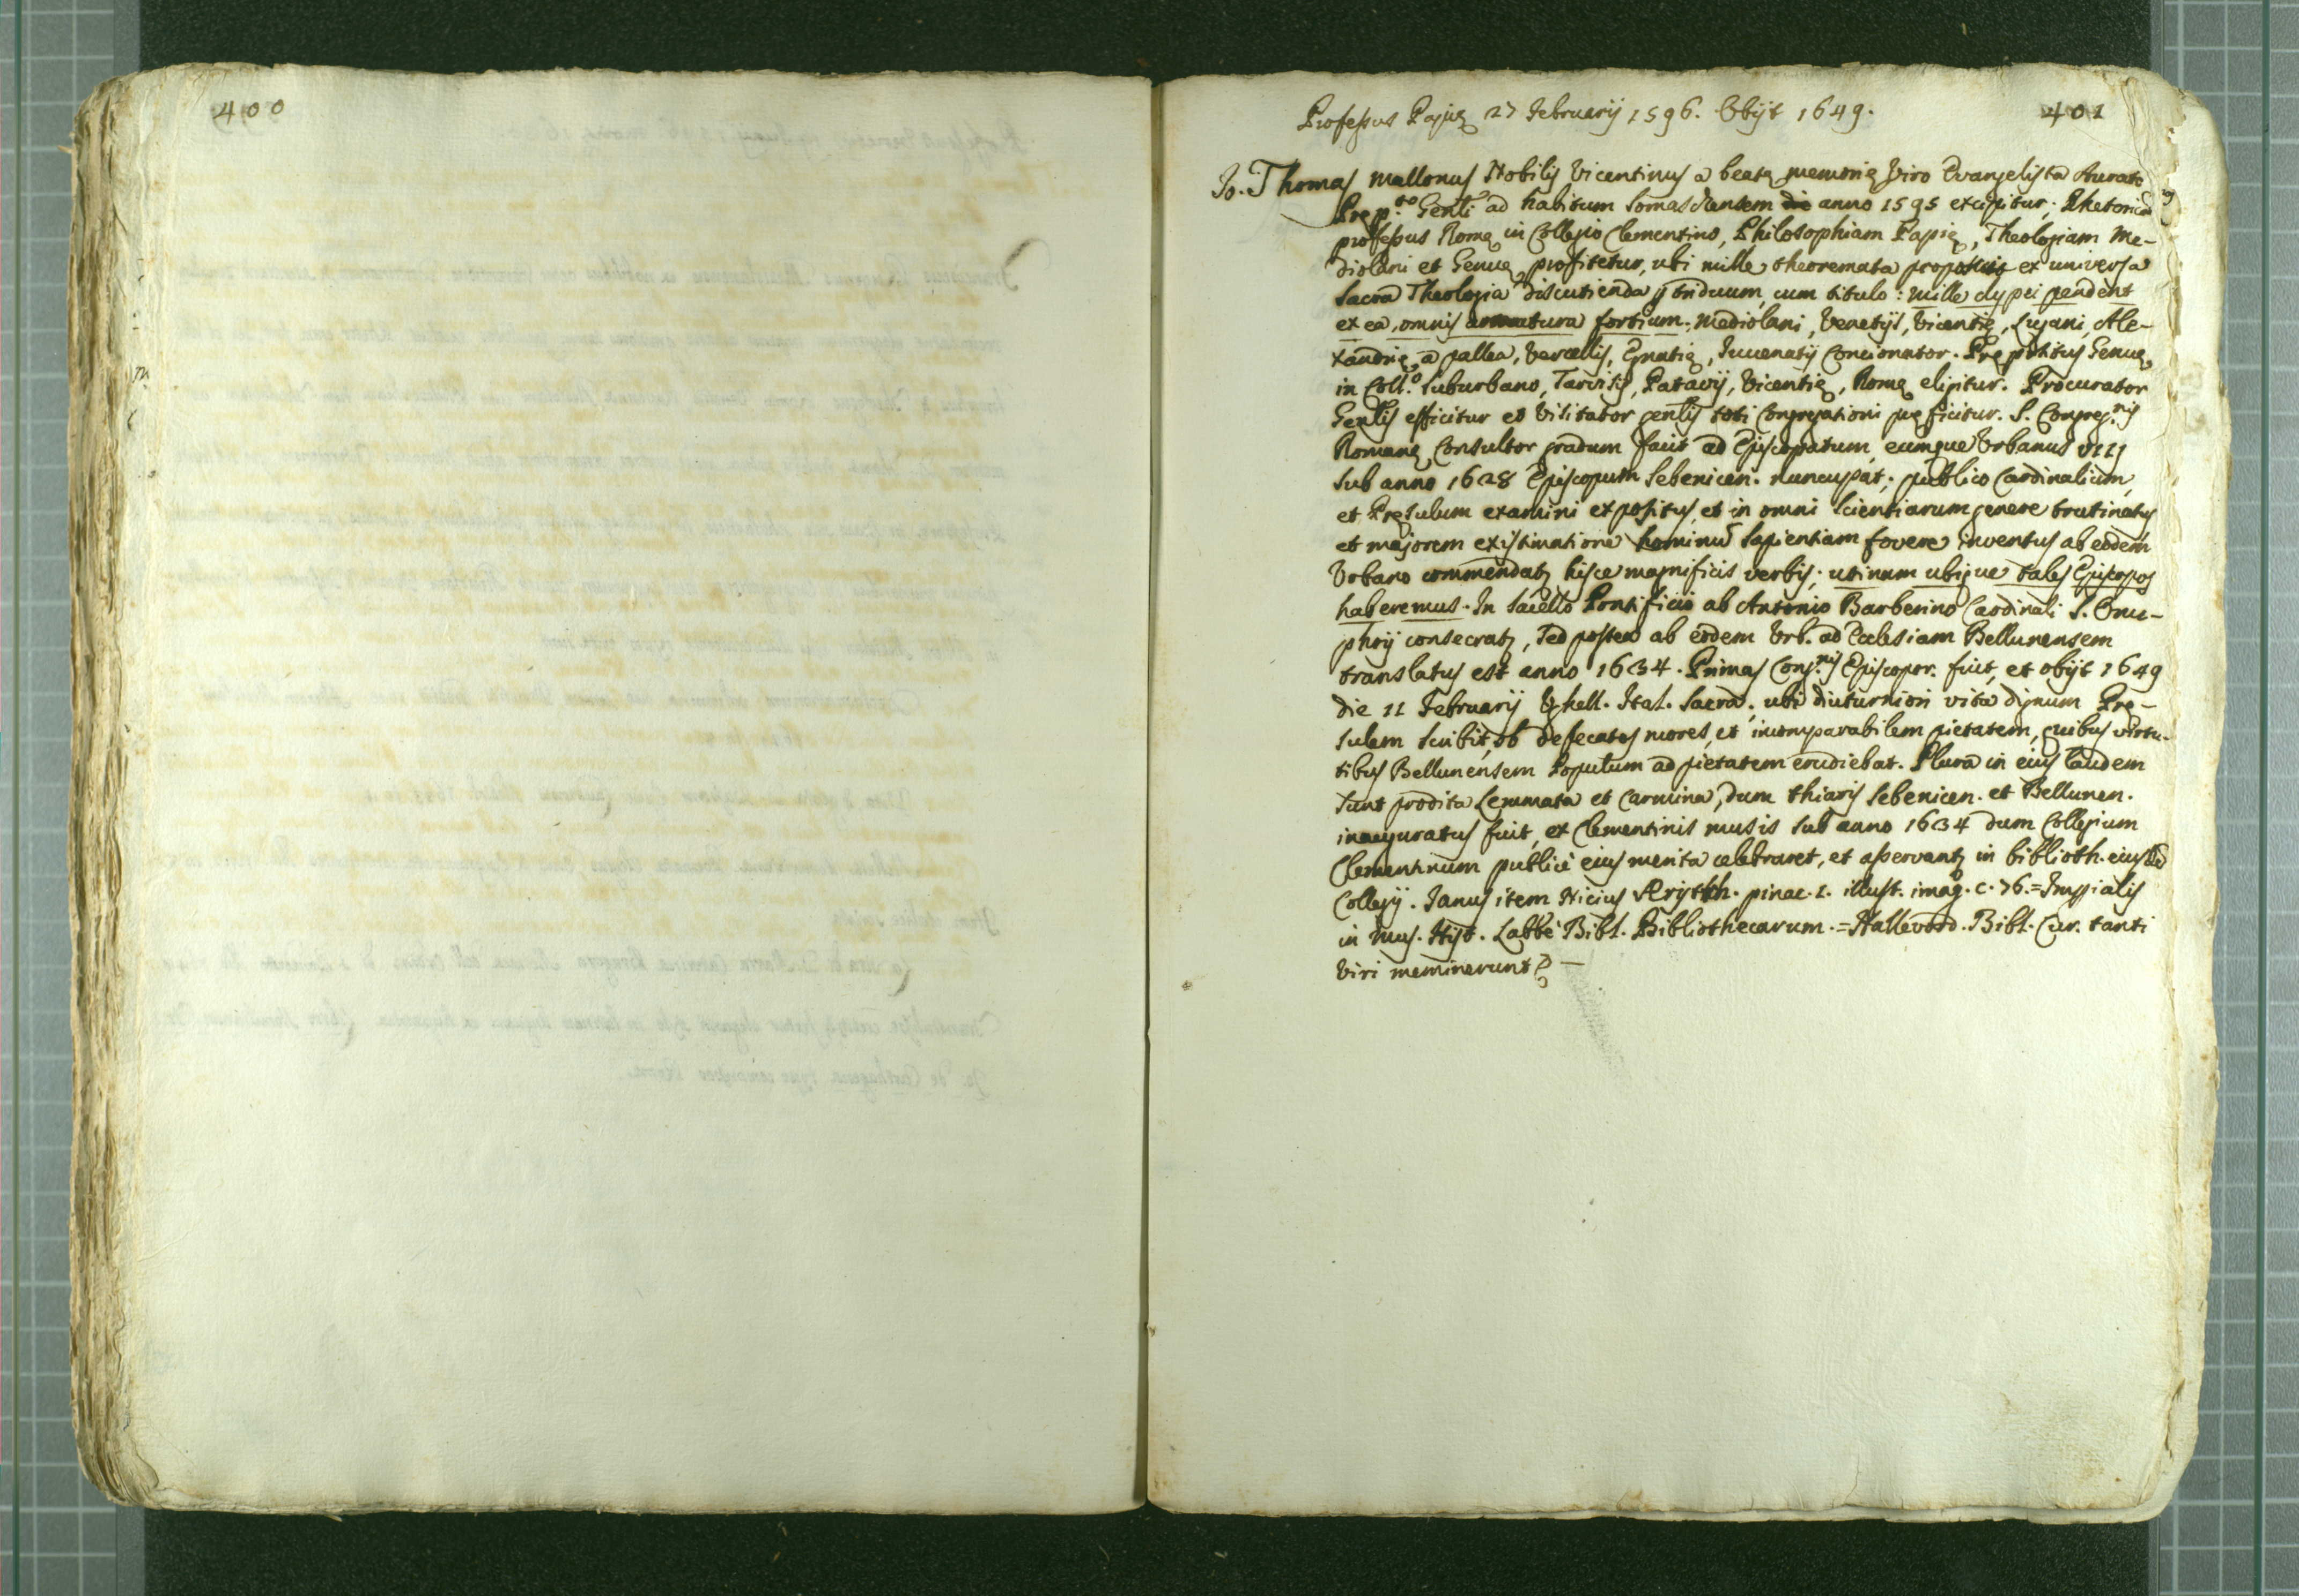 400
401
Professus Papię 27 Februarij 1596. Obijt 1649.
Jo. Thomas Mallonus Nobilis Vicentinus a beatę memorię Viro Evangelista Aurato
Prep.to Genli ad habitum Somaschensem anno 1595 excipitur; Rhetoricā
professus Romę in Collegio Clementino, Philosophiam Papię, Theologiam Me-
diolani et Genuę profitetur, ubi mille theoremata proposuit ex universa
Sacra Theologia discutienda triduum, cum titulo: Mille clypei pendent
ex ea, omnis armatura fortium. Mediolani, Venetijs, Vicentię, Lugani, Ale-
xandrię a pallea, Vercellis, Egnatię, Iuvenatij Concionator. Prępositus Genuę
in Coll.o Suburbano, Tarvisij, Patavij, Vicentię, Romę eligitur. Procurator
Genlis efficitur et Visitator genlis toti Congregationi pręficitur. S. Congreg.nis
Romanę Consultor gradum facit ad Episcopatum, eumque Urbanus VIII
sub anno 1628 Episcopum Sebenicen. nuncupat; publico Cardinalium,
et Pręsulum examini expositus, et in omni scientiarum genere trutinatus
et majorem existimatione hominū sapientiam fovere inventus ab eodem
Urbano commendatz hisce magnificis verbis; utinam ubique tales Episcopos
haberemus. In sacello Pontificio ab Antonio Barberino Cardinali S. Onu-
phrij consecratz, sed postea ab eodem Urb. ad Ecclesiam Bellunensem
translatus est anno 1634. Primas Cong.nis Episcopor. fuit, et obijt 1649
die 11 Februarij Ughell. Ital. Sacra; ubi diuturniori vita dignum Prę-
sulem scribit, ob defecatos mores, et incomparabilem pietatem, quibus virtu-
tibus Bellunensem Populum ad pietatem erudiebat. Plura in eius laudem
sunt prodita Lemmata et Carmina, dum thiaris Sebenicen. et Bellunen.
inauguratus fuit, ex Clementinis musis sub anno 1634 dum Collegium
Clementinum publicè eius merita celebraret, et asservantz in biblioth. eiusdē
Collegij. Janus item Nicius Ærythh. pinac. 1. illust. imag. c. 76. = Imperialis
in Mus. Hist. Labbè Bibl. Bibliothecarum. = Hallevord. Bibl. Cur. tanti
Viri meminerunt